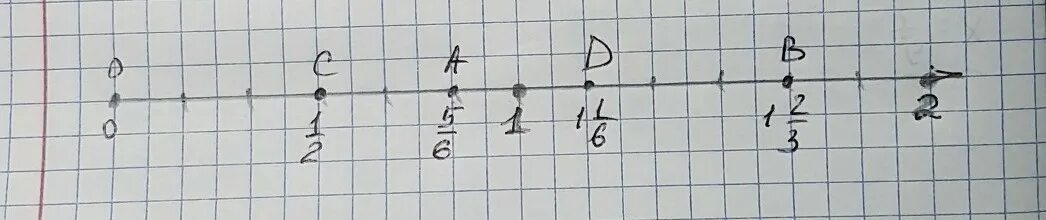 O C A D B
0 1/2 5/6 1 1 1/6 1 2/3 2